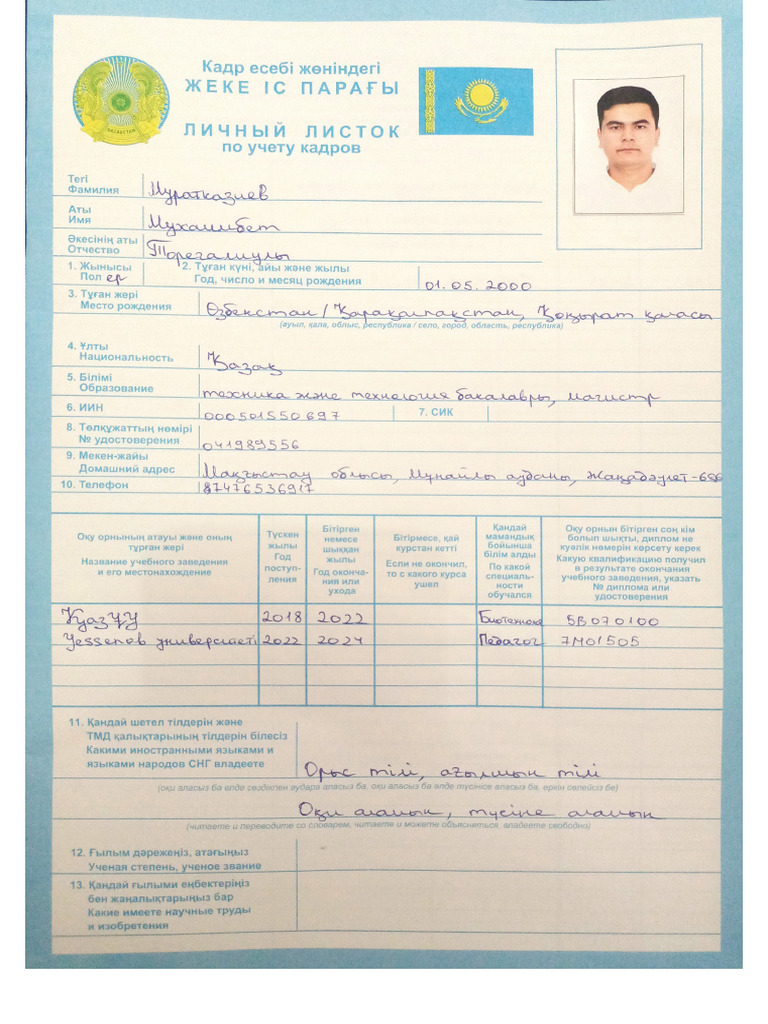 Кадр есебі жөніндегі
ЖЕКЕ ІС ПАРАҒЫ
ЛИЧНЫЙ ЛИСТОК
по учету кадров
ҚАЗАҚСТАН
Тегі
Фамилия Муратказиев
Аты
Имя Мухаммбет
Әкесінің аты
Отчество Торегалиулы
1. Жынысы
Пол ер
2. Туған күні, айы және жылы
Год, число и месяц рождения 01.05.2000
3. Туған жері
Место рождения Өзбекстан/Қарақалпақстан, Қоңырат қаласы
(ауыл, қала, облыс, республика / село, город, область, республика)
4. Ұлты
Национальность Қазақ
5. Білімі
Образование техника және технология бакалавры, магистр
6. ИИН 000501550697 7. СИК
8. Төлқұжаттың нөмірі
№ удостоверения 041989556
9. Мекен-жайы
Домашний адрес Маңғыстау облысы, Мұнайлы ауданы, Жаңадәулет-
10. Телефон 87476536917
Оқу орнының атауы және оның тұрған жері
Название учебного заведения и его местонахождение
Түскен жылы
Год поступ-
ления
Бітірген немесе шыққан жылы
Год оконча-
ния или ухода
Бітірмесе, қай курстан кетті
Если не окончил, то с какого курса ушел
Қандай мамандық бойынша білім алды
По какой специаль-
ности обучался
Оқу орнын бітірген соң кім болып шықты, диплом не куәлік нөмерін көрсету керек
Какую квалификацию получил в результате окончания учебного заведения, указать № диплома или удостоверения
ҚазҰУ 2018 2022 5В070100
Yessenov университеті 2022 2024 Педагог 7М01505
11. Қандай шетел тілдерін және
ТМД қалықтарының тілдерін білесіз
Какими иностранными языками и
языками народов СНГ владеете
Орыс тілі, ағылшын тілі
(оқи аласыз ба әлде сөздікпен аудара аласыз ба, оқи аласыз ба әлде түсінісе аласыз ба, еркін сөйлейсіз бе)
Оқи аламын, түсіне аламын
(читаете и переводите со словарем, читаете и можете объясняться, владеете свободно)
12. Ғылым дәрежеңіз, атағыңыз
Ученая степень, ученое звание
13. Қандай ғылыми еңбектеріңіз
бен жаңалықтарыңыз бар
Какие имеете научные труды
и изобретения